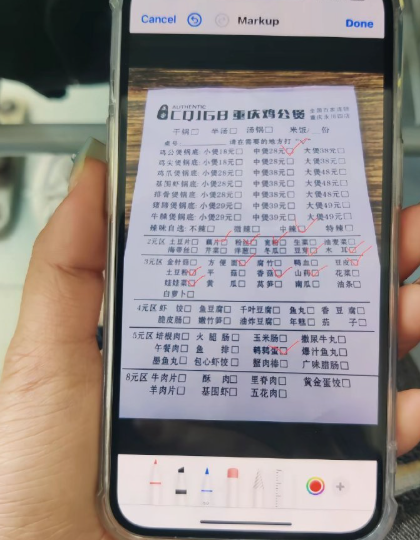 Cancel Markup Done
AUTHENTIC
CQJGB 重庆鸡公煲
干锅□ 半汤□ 汤锅□ 米饭 份
桌号 请在需要的地方打"✓"
鸡公煲锅底:小煲18元□ 中煲28元□ 大煲38元□
鸡尖煲锅底:小煲18元□ 中煲28元□ 大煲38元□
鸡爪煲锅底:小煲18元□ 中煲28元□ 大煲38元□
基围虾锅底:小煲28元□ 中煲38元□ 大煲49元□
排骨煲锅底:小煲28元□ 中煲38元□ 大煲49元□
小煲28元□ 中煲38元□ 大煲49元□
牛腩煲锅底:小煲28元□ 中煲39元□ 大煲49元□
辣味自选:不辣□ 微辣□ 中辣□ 特辣□
2元区 土豆片□ 藕片□ 粉丝□ 宽粉□ 生菜□ 油麦菜□
海带丝□ 芹菜□ 洋葱□ 冬瓜□ 豆芽□ 木耳□
3元区 金针菇□ 方便面□ 腐竹□ 鸭血□ 豆皮□
土豆粉□ 平菇□ 香菇□ 山药□ 花菜□
娃娃菜□ 黄瓜□ 莴笋□ 南瓜□ 油条□
白萝卜□
4元区 虾饺□ 鱼豆腐□ 千叶豆腐□ 鱼丸□ 香豆腐□
脆皮肠□ 嫩竹笋□ 油炸豆腐□ 年糕□ 茄子□
5元区 培根肉□ 火腿肠□ 玉米肠□ 撒尿牛丸□
午餐肉□ 鱼排□ 鹌鹑蛋□ 爆汁鱼丸□
墨鱼丸□ 包心虾饺□ 蟹肉棒□ 广味腊肠□
8元区 牛肉片□ 酥肉□ 里脊肉□ 黄金蛋饺□
羊肉片□ 基围虾□ 五花肉□